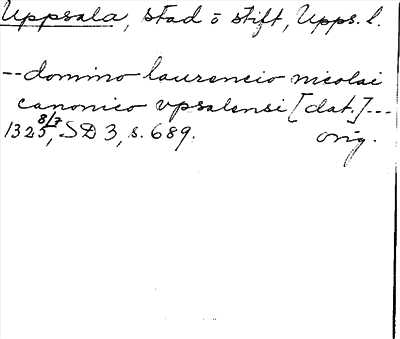 Uppsala, stad o stift, Upps. l.
-- domino laurencio nicolai
canonico vpsalensi [dat.] ---
1325 8/7, SD 3, s. 689. orig.